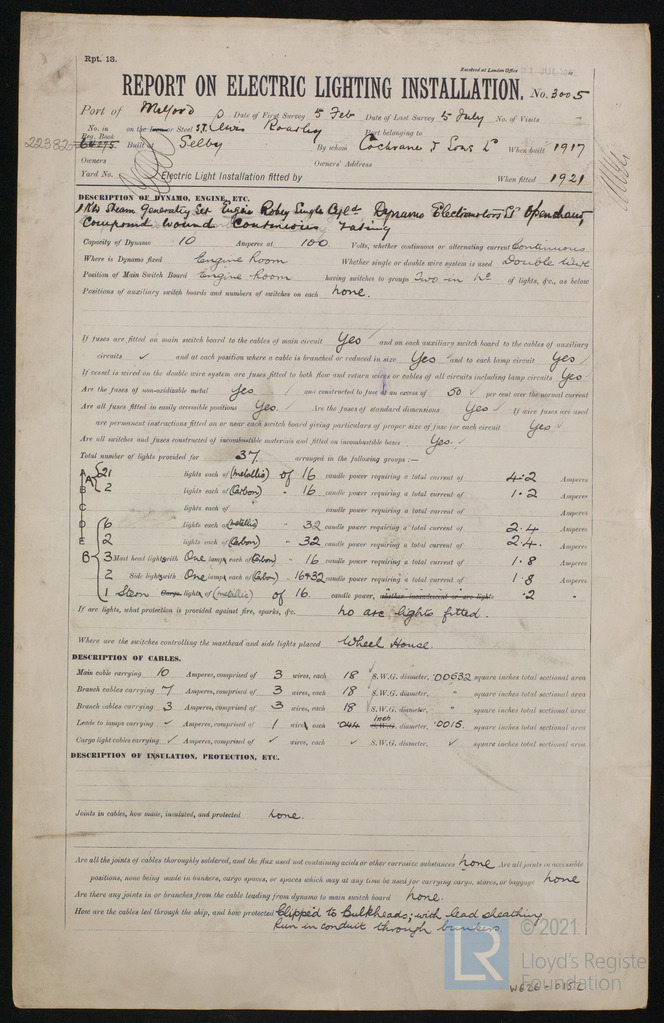 Rpt. 13.
Received at London Office
REPORT ON ELECTRIC LIGHTING INSTALLATION. No. 3005
Port of Milford Date of First Survey 5 Feb Date of Last Survey 5 July No. of Visits
No. in Reg. Book 64275 on the Iron or Steel S.T. Port belonging to
Built at Selby By whom Cochrane & Sons Ld When built 1917
Owners Owners' Address
Yard No. Electric Light Installation fitted by When fitted 1921
DESCRIPTION OF DYNAMO, ENGINE, ETC.
1 KW Steam Generating Set Engine Robey Single Cyld. Dynamo Electromotors Ld Openshaw,
Compound Wound Continuous rating
Capacity of Dynamo 10 Amperes at 100 Volts, whether continuous or alternating current Continuous
Where is Dynamo fixed Engine Room Whether single or double wire system is used Double Wire
Position of Main Switch Board Engine Room having switches to groups Two in No of lights, &c., as below
Positions of auxiliary switch boards and numbers of switches on each none.
If fuses are fitted on main switch board to the cables of main circuit Yes and on each auxiliary switch board to the cables of auxiliary
circuits ✓ and at each position where a cable is branched or reduced in size Yes and to each lamp circuit Yes
If vessel is wired on the double wire system are fuses fitted to both flow and return wires or cables of all circuits including lamp circuits Yes
Are the fuses of non-oxidizable metal Yes and constructed to fuse at an excess of 50 per cent over the normal current
Are all fuses fitted in easily accessible positions Yes. Are the fuses of standard dimensions Yes If wire fuses are used
are permanent instructions fitted on or near each switch board giving particulars of proper size of fuse for each circuit Yes
Are all switches and fuses constructed of incombustible materials and fitted on incombustible bases Yes.
Total number of lights provided for 37 arranged in the following groups :—
A 21 lights each of (metallic) of 16 candle power requiring a total current of 4.2 Amperes
B 2 lights each of (Carbon) " 16 candle power requiring a total current of 1.2 Amperes
C lights each of candle power requiring a total current of Amperes
D 6 lights each of (metallic) " 32 candle power requiring a total current of 2.4 Amperes
E 2 lights each of (Carbon) " 32 candle power requiring a total current of 2.4 Amperes
B 3 Mast head lights with One lamp each of (Carbon) " 16 candle power requiring a total current of 1.8 Amperes
2 Side lights with One lamp each of (Carbon) " 16 & 32 candle power requiring a total current of 1.8 Amperes
1 Stern Cargo lights of (metallic) of 16 candle power, whether incandescent or arc lights .2 "
If arc lights, what protection is provided against fire, sparks, &c. no arc lights fitted.
Where are the switches controlling the masthead and side lights placed Wheel House.
DESCRIPTION OF CABLES.
Main cable carrying 10 Amperes, comprised of 3 wires, each 18 S.W.G. diameter, .00532 square inches total sectional area
Branch cables carrying 7 Amperes, comprised of 3 wires, each 18 S.W.G. diameter, " square inches total sectional area
Branch cables carrying 3 Amperes, comprised of 3 wires, each 18 S.W.G. diameter, " square inches total sectional area
Leads to lamps carrying ✓ Amperes, comprised of 1 wires, each .044 inch S.W.G. diameter, .0015 square inches total sectional area
Cargo light cables carrying ✓ Amperes, comprised of ✓ wires, each ✓ S.W.G. diameter, ✓ square inches total sectional area
DESCRIPTION OF INSULATION, PROTECTION, ETC.
Joints in cables, how made, insulated, and protected none.
Are all the joints of cables thoroughly soldered, and the flux used not containing acids or other corrosive substances none Are all joints in accessible
positions, none being made in bunkers, cargo spaces, or spaces which may at any time be used for carrying cargo, stores, or baggage none
Are there any joints in or branches from the cable leading from dynamo to main switch board none.
How are the cables led through the ship, and how protected Clipped to Bulkheads; with lead sheathing
Run in conduit through bunkers.
LR
© 2021
Lloyd's Register
Foundation
W626-0152